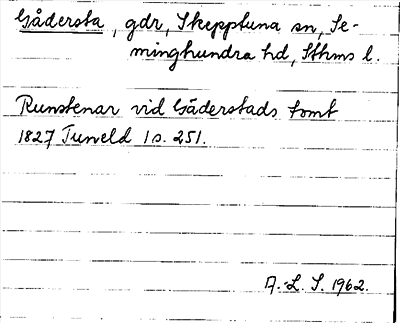 Gådersta, gdr, Skepptuna sn, Se-
minghundra hd, Sthms l.
Runstenar vid Gåderstads tomt
1827 Tuneld 1 s. 251.
A. L. S. 1962.